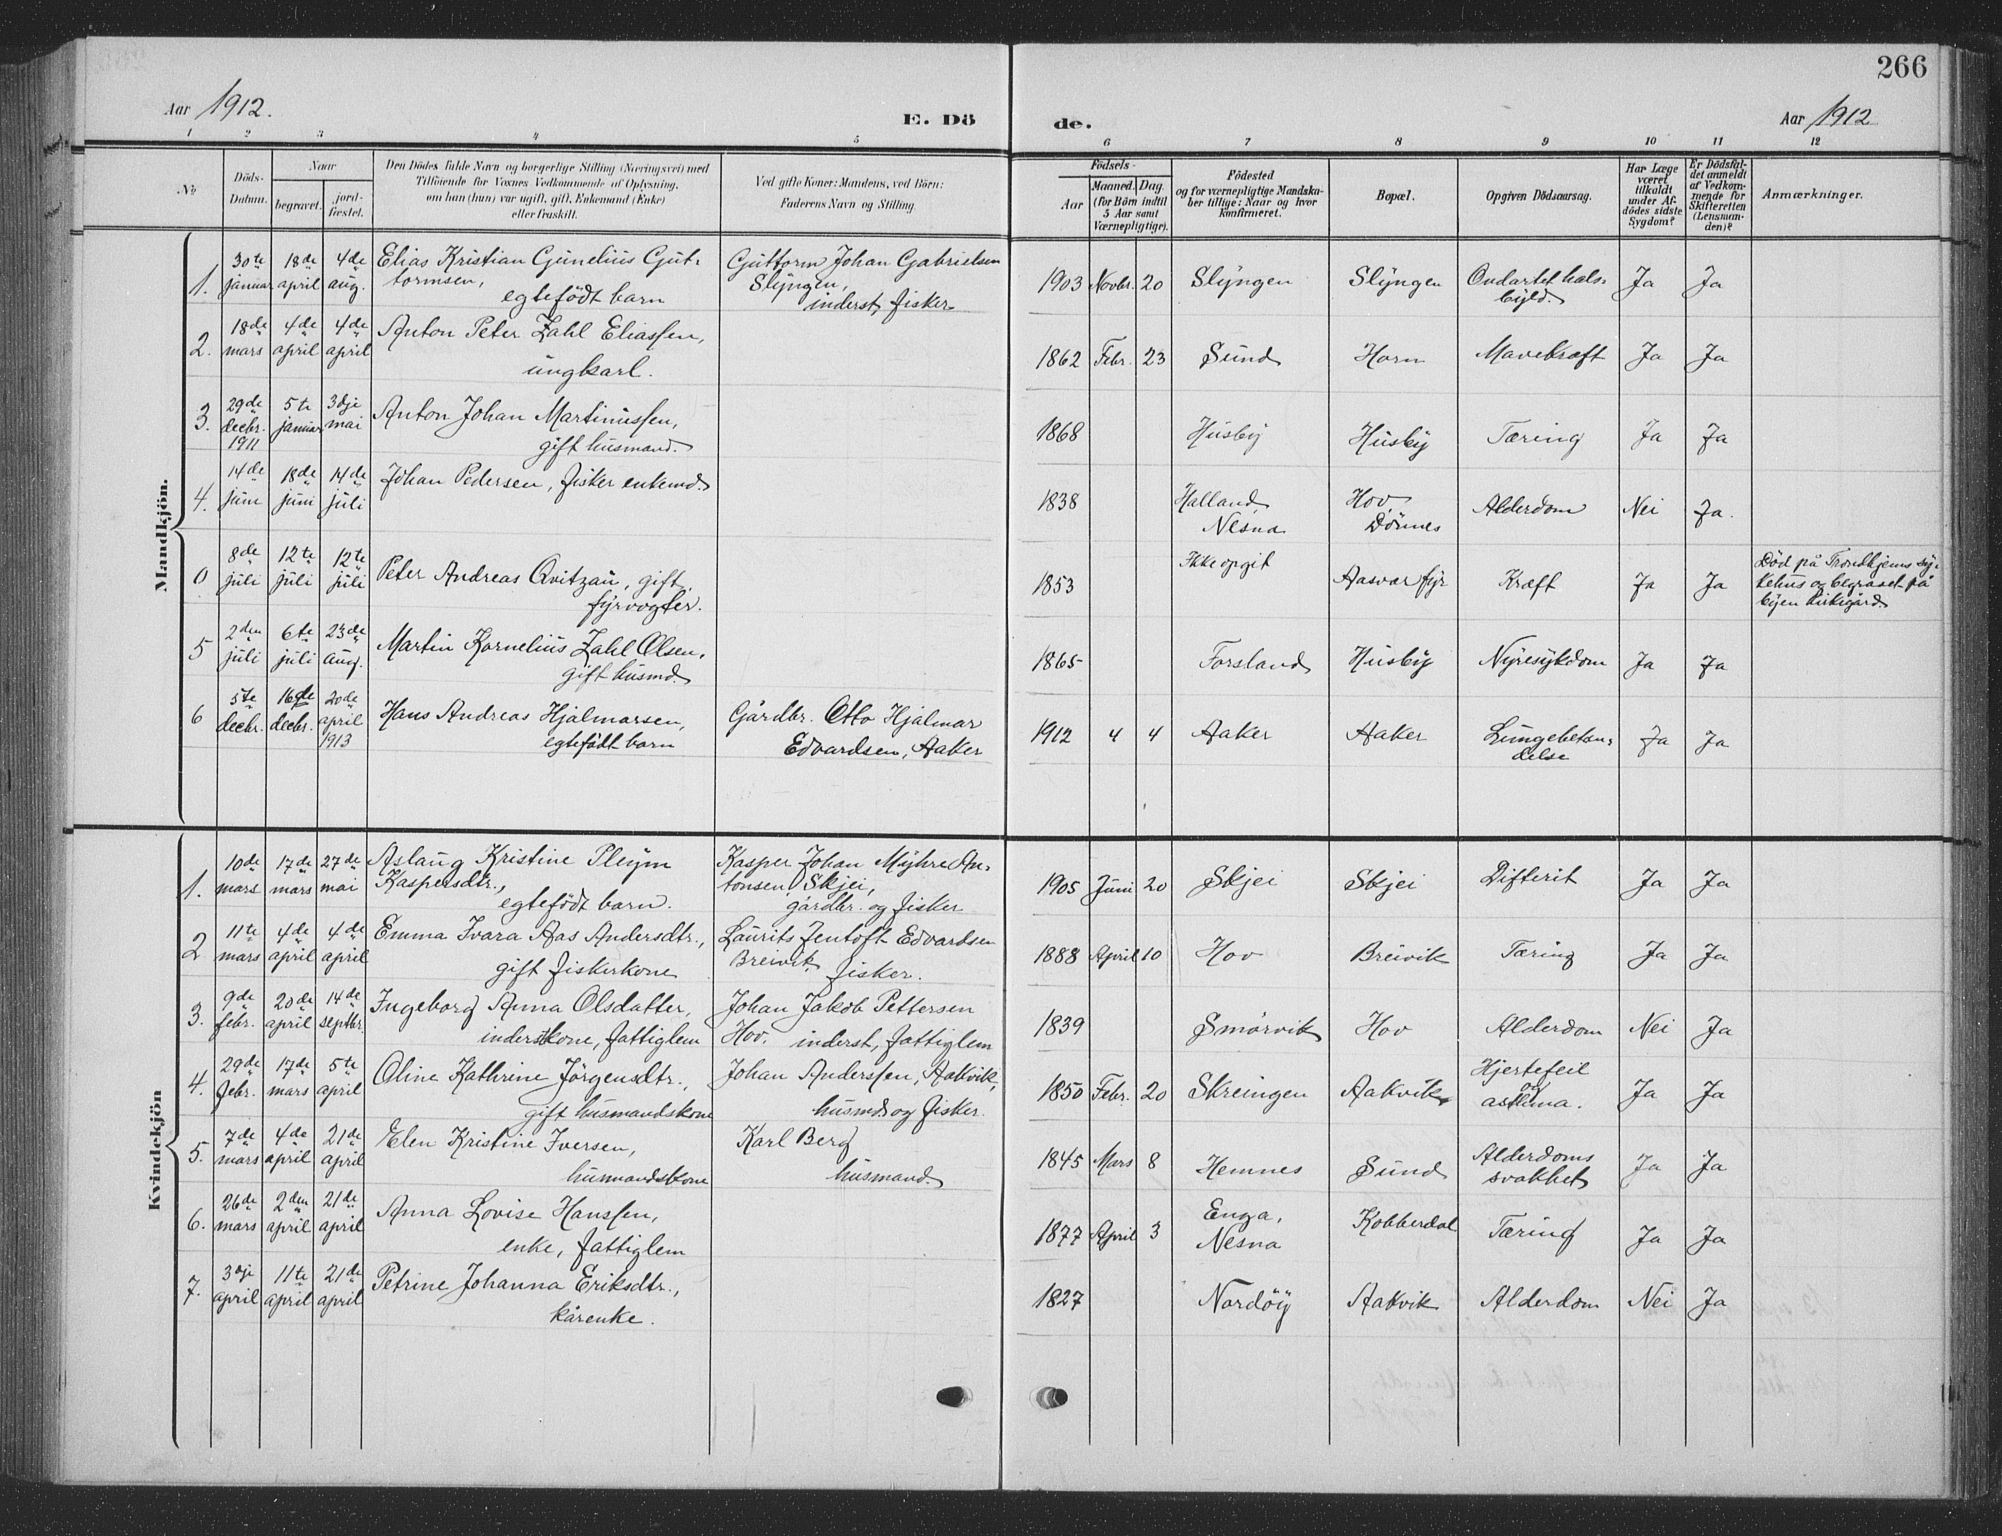 266
Aar 1912.
E. Dö
de.
Aar 1912
1 2 3 4 5 6 7 8 9 10 11 12
No
Döds-
Datum.
Naar
begravet.
jord-
fæstet.
Den Dödes fulde Navn og borgerlige Stilling (Næringsvei) med
Tilföiende for Voxnes Vedkommende af Oplysning,
om han (hun) var ugift, gift, Enkemand (Enke)
eller fraskilt.
Ved gifte Koner: Mandens, ved Börn:
Faderens Navn og Stilling.
Födsels-
Aar
Maaned. Dag.
(for Börn indtil
5 Aar samt
Værnepligtige).
Födested
og for værnepligtige Mandska-
ber tillige: Naar og hvor
konfirmeret.
Bopæl.
Opgiven Dödsaarsag.
Har Læge
været
tilkaldt
under Af-
dödes sidste
Sygdom?
Er Dödsfal-
det anmeldt
af Vedkom-
mende for
Skifteretten
(Lensman-
den)?
Anmærkninger.
Mandkjön.
1.
30te januar
18de april
4de aug.
Elias Kristian Gunelius Gut-
tormsen,
egtefödt barn
Guttorm Johan Gabrielsen
Slyngen,
inderst, fisker
1903 Novbr. 20 Slyngen Slyngen Ondartet hals-
byld.
Ja Ja
2.
18de mars
4de april
4de april
Anton Peter Zahl Eliassen,
ungkarl.
1862 Febr. 23 Sund Horn Mavekræft Ja Ja
3.
29de decbr. 1911
5te januar
3dje mai
Anton Johan Martinussen,
gift husmand.
1868 Husby Husby Tæring Ja Ja
4.
14de juni
18de juni
14de juli
Johan Pedersen, fisker enkemd.
1838 Halland,
Nesna
Hov,
Dönnes
Alderdom Nei Ja.
0
8de juli
12te juli
12te juli
Peter Andreas Qvitzau, gift,
fyrvogter.
1853 Ikke opgit Aasvær fyr Kræft Ja Ja
Död på Trondhjems sy-
kehus og begravet på
byen kirkegård.
5
2den juli
6te juli
23de aug.
Martin Kornelius Zahl Olsen,
gift husmd.
1865 Forsland Husby Nyresykdom Ja Ja
6
5te decbr.
16de decbr.
20de april 1913
Hans Andreas Hjalmarsen,
egtefödt barn
Gårdbr. Otto Hjalmar
Edvardsen, Aaker
1912 4 4 Aaker Aaker Lungebetæn-
delse
Ja Ja
Kvindekjön
1.
10de mars
17de mars
27de mai
Aslaug Kristine Pleym
Kaspersdtr.,
egtefödt barn.
Kasper Johan Myhre An-
tonsen, Skjei,
gårdbr. og fisker
1905 Juni 20 Skjei Skjei Difterit Ja Ja
2
11te mars
4de april
4de april
Emma Ivara Aas Andersdtr.,
gift fiskerkone
Laurits Jentoft Edvardsen
Breivik, fisker.
1888 April 10 Hov Breivik Tæring Ja Ja
3.
9de febr.
20de april
14de septbr.
Ingeborg Anna Olsdatter,
inderstkone, fattiglem
Johan Jakob Pettersen
Hov. inderst, fattiglem
1839 Smörvik Hov Alderdom Nei Ja
4.
29de febr.
17de mars
5te april
Oline Kathrine Jörgensdtr.,
gift husmandskone
Johan Anderssen, Aakvik,
husmd. og fisker.
1850 Febr. 20 Skreingen Aakvik Hjertefeil
og
asthma.
Ja Ja
5.
7de mars
4de april
21de april
Elen Kristine Iversen,
husmandskone
Karl Berg
husmand
1845 Mars 8 Hemnes Sund Alderdoms
svakhet
Ja Ja
6.
26de mars
2den april
21de april
Anna Lovise Hanssen,
enke, fattiglem
1877 April 3 Enga,
Nesna
Kobberdal Tæring Ja Ja
7.
3dje april
11te april
21de april
Petrine Johanna Eriksdtr.,
kårenke.
1827 Nordöy Aakvik Alderdom Nei Ja